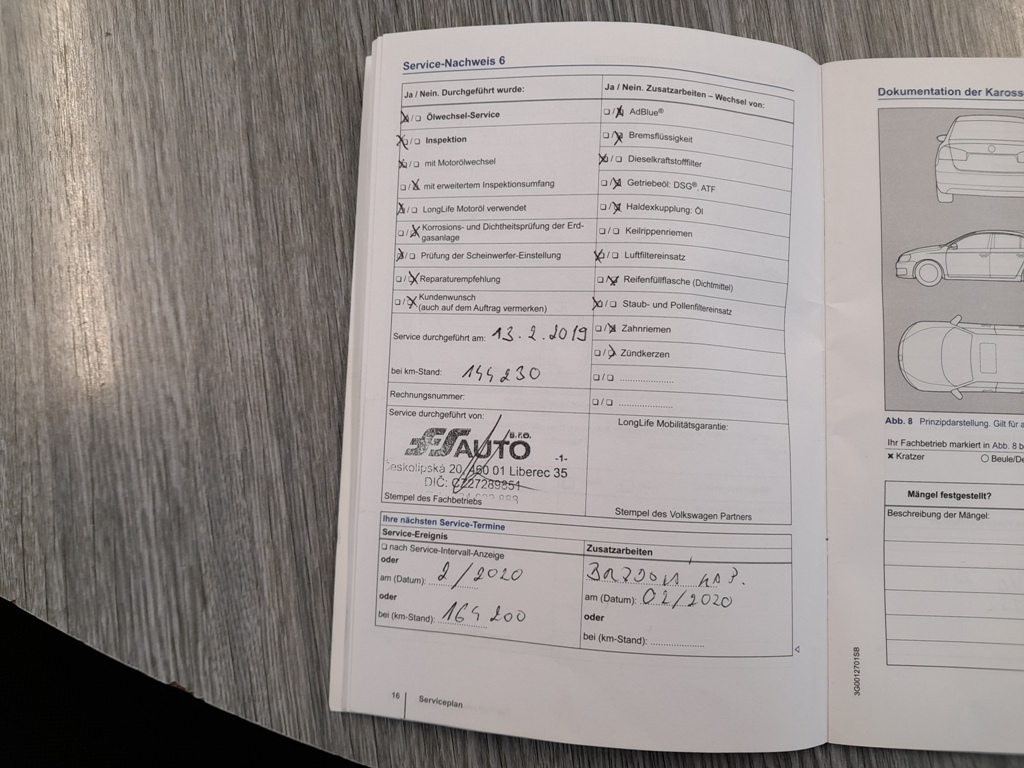 Service-Nachweis 6
Ja / Nein. Durchgeführt wurde:
Ölwechsel-Service
Inspektion
mit Motorölwechsel
mit erweitertem Inspektionsumfang
LongLife Motoröl verwendet
Korrosions- und Dichtheitsprüfung der Erd-
gasanlage
Prüfung der Scheinwerfer-Einstellung
Reparaturempfehlung
Kundenwunsch
(auch auf dem Auftrag vermerken)
Service durchgeführt am: 13.2.2019
bei km-Stand: 144230
Rechnungsnummer:
Service durchgeführt von:
AUTO s.r.o.
-1-
Českolipská 20, 460 01 Liberec 35
DIČ: CZ27289851
Stempel des Fachbetriebs
Ja / Nein. Zusatzarbeiten – Wechsel von:
AdBlue®
Bremsflüssigkeit
Dieselkraftstofffilter
Getriebeöl: DSG®, ATF
Haldexkupplung: Öl
Keilrippenriemen
Luftfiltereinsatz
Reifenfüllflasche (Dichtmittel)
Staub- und Pollenfiltereinsatz
Zahnriemen
Zündkerzen
LongLife Mobilitätsgarantie:
Stempel des Volkswagen Partners
Ihre nächsten Service-Termine
Service-Ereignis
nach Service-Intervall-Anzeige
oder
am (Datum): 2/2020
oder
bei (km-Stand): 164200
Zusatzarbeiten
am (Datum): 02/2020
oder
bei (km-Stand):
16 Serviceplan
Dokumentation der Kaross
Abb. 8 Prinzipdarstellung. Gilt für a
Ihr Fachbetrieb markiert in Abb. 8 b
Kratzer
Beule/De
Mängel festgestellt?
Beschreibung der Mängel:
3G0012701SB